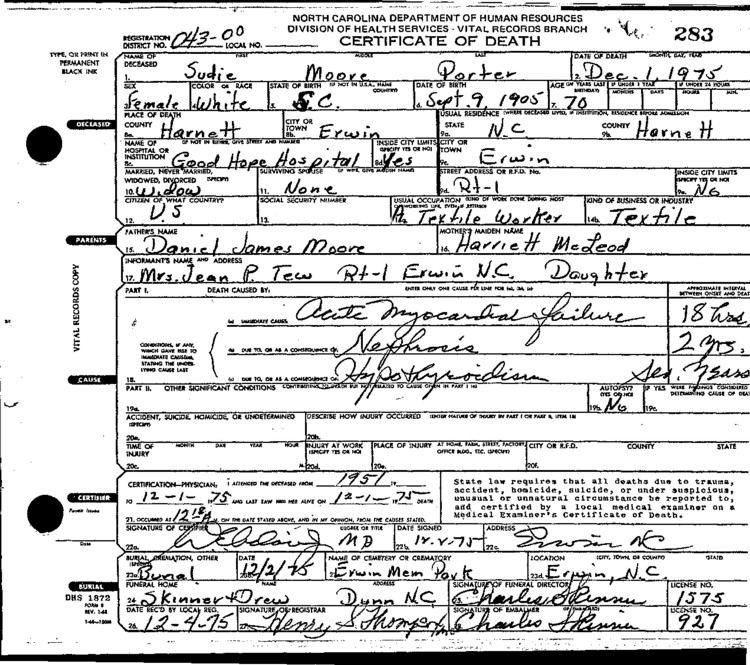 NORTH CAROLINA DEPARTMENT OF HUMAN RESOURCES
DIVISION OF HEALTH SERVICES - VITAL RECORDS BRANCH
CERTIFICATE OF DEATH
283
REGISTRATION DISTRICT NO. 043-00 LOCAL NO.
TYPE, OR PRINT IN PERMANENT BLACK INK
NAME OF DECEASED FIRST MIDDLE LAST DATE OF DEATH (MONTH, DAY, YEAR)
1. Sudie Moore Porter 2. Dec. 1, 1975
SEX COLOR OR RACE STATE OF BIRTH (IF NOT IN U.S.A., NAME COUNTRY) DATE OF BIRTH AGE (IN YEARS LAST BIRTHDAY) IF UNDER 1 YEAR IF UNDER 24 HOURS
MONTHS DAYS HOURS MIN.
Female White S.C. 6. Sept. 9, 1905 7. 70
PLACE OF DEATH USUAL RESIDENCE (WHERE DECEASED LIVED, IF INSTITUTION, RESIDENCE BEFORE ADMISSION)
DECEASED
COUNTY CITY OR TOWN STATE COUNTY
8a. Harnett 8b. Erwin 9a. N.C. 9b. Harnett
NAME OF HOSPITAL OR INSTITUTION (IF NOT IN EITHER, GIVE STREET AND NUMBER) INSIDE CITY LIMITS (SPECIFY YES OR NO) CITY OR TOWN
8c. Good Hope Hospital 8d. Yes 9c. Erwin
MARRIED, NEVER MARRIED, WIDOWED, DIVORCED (SPECIFY) SURVIVING SPOUSE (IF WIFE, GIVE MAIDEN NAME) STREET ADDRESS OR R.F.D. No. INSIDE CITY LIMITS (SPECIFY YES OR NO)
10. Widow 11. None 9d. Rt-1 9e. No
CITIZEN OF WHAT COUNTRY? SOCIAL SECURITY NUMBER USUAL OCCUPATION (KIND OF WORK DONE DURING MOST OF WORKING LIFE, EVEN IF RETIRED) KIND OF BUSINESS OR INDUSTRY
12. U.S 13. 14a. Textile Worker 14b. Textile
PARENTS
FATHER'S NAME MOTHER'S MAIDEN NAME
15. Daniel James Moore 16. Harriett McLeod
INFORMANT'S NAME AND ADDRESS
17. Mrs. Jean P. Tew Rt-1 Erwin N.C. Daughter
VITAL RECORDS COPY
PART I. DEATH CAUSED BY: ENTER ONLY ONE CAUSE PER LINE FOR (a), (b), (c) APPROXIMATE INTERVAL BETWEEN ONSET AND DEATH
(a) IMMEDIATE CAUSE Acute Myocardial failure 18 hrs
CONDITIONS, IF ANY, WHICH GAVE RISE TO IMMEDIATE CAUSE(a), STATING THE UNDERLYING CAUSE LAST
(b) DUE TO, OR AS A CONSEQUENCE OF Nephrosis 2 yrs,
CAUSE
18. (c) DUE TO, OR AS A CONSEQUENCE OF Hypothyroidism Sev. Years
PART II. OTHER SIGNIFICANT CONDITIONS CONTRIBUTING TO DEATH BUT NOT RELATED TO CAUSE GIVEN IN PART I (a) AUTOPSY? (YES OR NO) IF YES WERE FINDINGS CONSIDERED IN DETERMINING CAUSE OF DEATH
19a. 19b. No 19c.
ACCIDENT, SUICIDE, HOMICIDE, OR UNDETERMINED (SPECIFY) DESCRIBE HOW INJURY OCCURRED (ENTER NATURE OF INJURY IN PART I OR PART II, ITEM 18)
20a. 20b.
TIME OF INJURY MONTH DAY YEAR HOUR INJURY AT WORK (SPECIFY YES OR NO) PLACE OF INJURY AT HOME, FARM, STREET, FACTORY, OFFICE BLDG., ETC. (SPECIFY) CITY OR R.F.D. COUNTY STATE
20c. M. 20d. 20e. 20f.
CERTIFIER
CERTIFICATION-PHYSICIAN: I ATTENDED THE DECEASED FROM 1951
TO 12-1- 75 AND LAST SAW HIM HER ALIVE ON 12-1- 75 DEATH
21. OCCURRED AT M. ON THE DATE STATED ABOVE, AND IN MY OPINION, FROM THE CAUSES STATED.
State law requires that all deaths due to trauma,
accident, homicide, suicide, or under suspicious,
unusual or unnatural circumstance be reported to,
and certified by a local medical examiner on a
Medical Examiner's Certificate of Death.
SIGNATURE OF CERTIFIER DEGREE OR TITLE DATE SIGNED ADDRESS
22a. MD 22b. 12-2-75 22c. Erwin NC
Date
BURIAL, CREMATION, OTHER (SPECIFY) DATE NAME OF CEMETERY OR CREMATORY LOCATION (CITY, TOWN, OR COUNTY) STATE
23a. Burial 23b. 12/2/75 Erwin Mem Park 23d. Erwin, N.C.
BURIAL
FUNERAL HOME NAME ADDRESS SIGNATURE OF FUNERAL DIRECTOR LICENSE NO.
24. Skinner & Drew Dunn NC Charles Skinner 1575
DATE REC'D BY LOCAL REG. SIGNATURE OF REGISTRAR SIGNATURE OF EMBALMER LICENSE NO.
26. 12-4-75 Henry S. Thompson Charles Skinner 927
DHS 1872
FORM 8